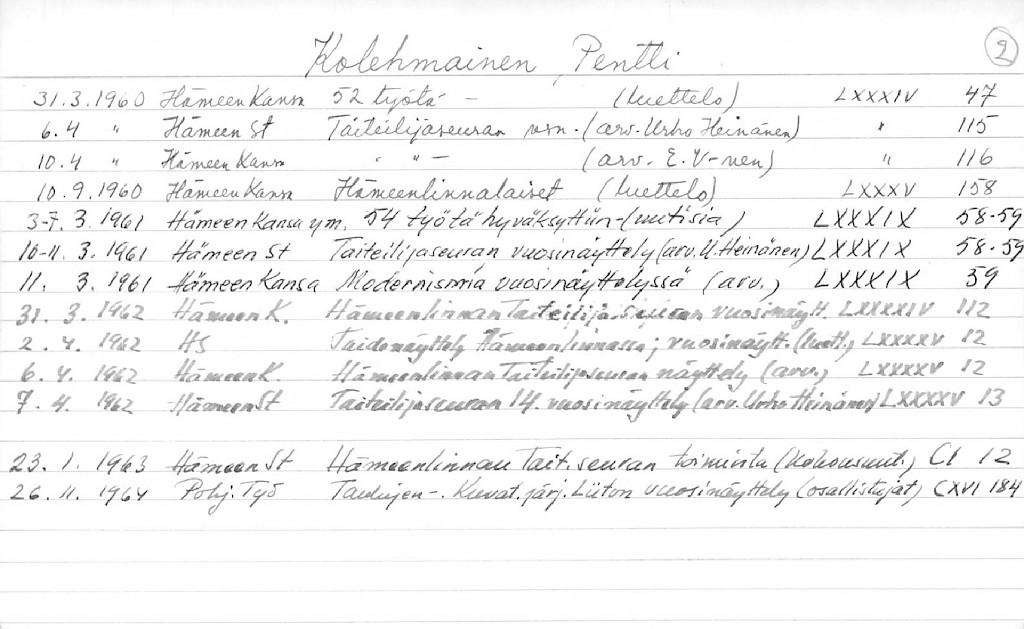 Kolehmainen, Pentti 2
31.3.1960 Hämeen Kansa 52 työtä — (luettelo) LXXXIV 47
6.4 " Hämeen St Taiteilijaseuran vsn. (arv. Urho Heinänen) " 115
10.4 " Hämeen Kansa " " — (arv. E. V-nen) " 116
10.9.1960 Hämeen Kansa Hämeenlinnalaiset (luettelo) LXXXV 158
3-7. 3. 1961 Hämeen Kansa ym. 54 työtä hyväksyttiin - (uutisia) LXXXIX 58-59
10-11. 3. 1961 Hämeen St Taiteilijaseuran vuosinäyttely (arv. U. Heinänen) LXXXIX 58-59
11. 3. 1961 Hämeen Kansa Modernismia vuosinäyttelyssä (arv.) LXXXIX 59
31. 3. 1962 Hämeen K. Hämeenlinnan Taiteilijaseuran vuosinäytt. LXXXXIV 112
2. 4. 1962 HS Taidenäyttely Hämeenlinnassa; vuosinäytt. (luett.) LXXXXV 12
6. 4. 1962 Hämeen K. Hämeenlinnan Taiteilijaseuran näyttely (arv.) LXXXXV 12
7. 4. 1962 Hämeen St Taiteilijaseuran 14. vuosinäyttely (arv. Urho Heinänen) LXXXXV 13
23. 1. 1963 Hämeen St Hämeenlinnan Tait. seuran toiminta (kokousuut.) CI 12
26. 11. 1964 Pohj. Työ Kuvat. järj. Liiton vuosinäyttely (osallistujat) CXVI 184